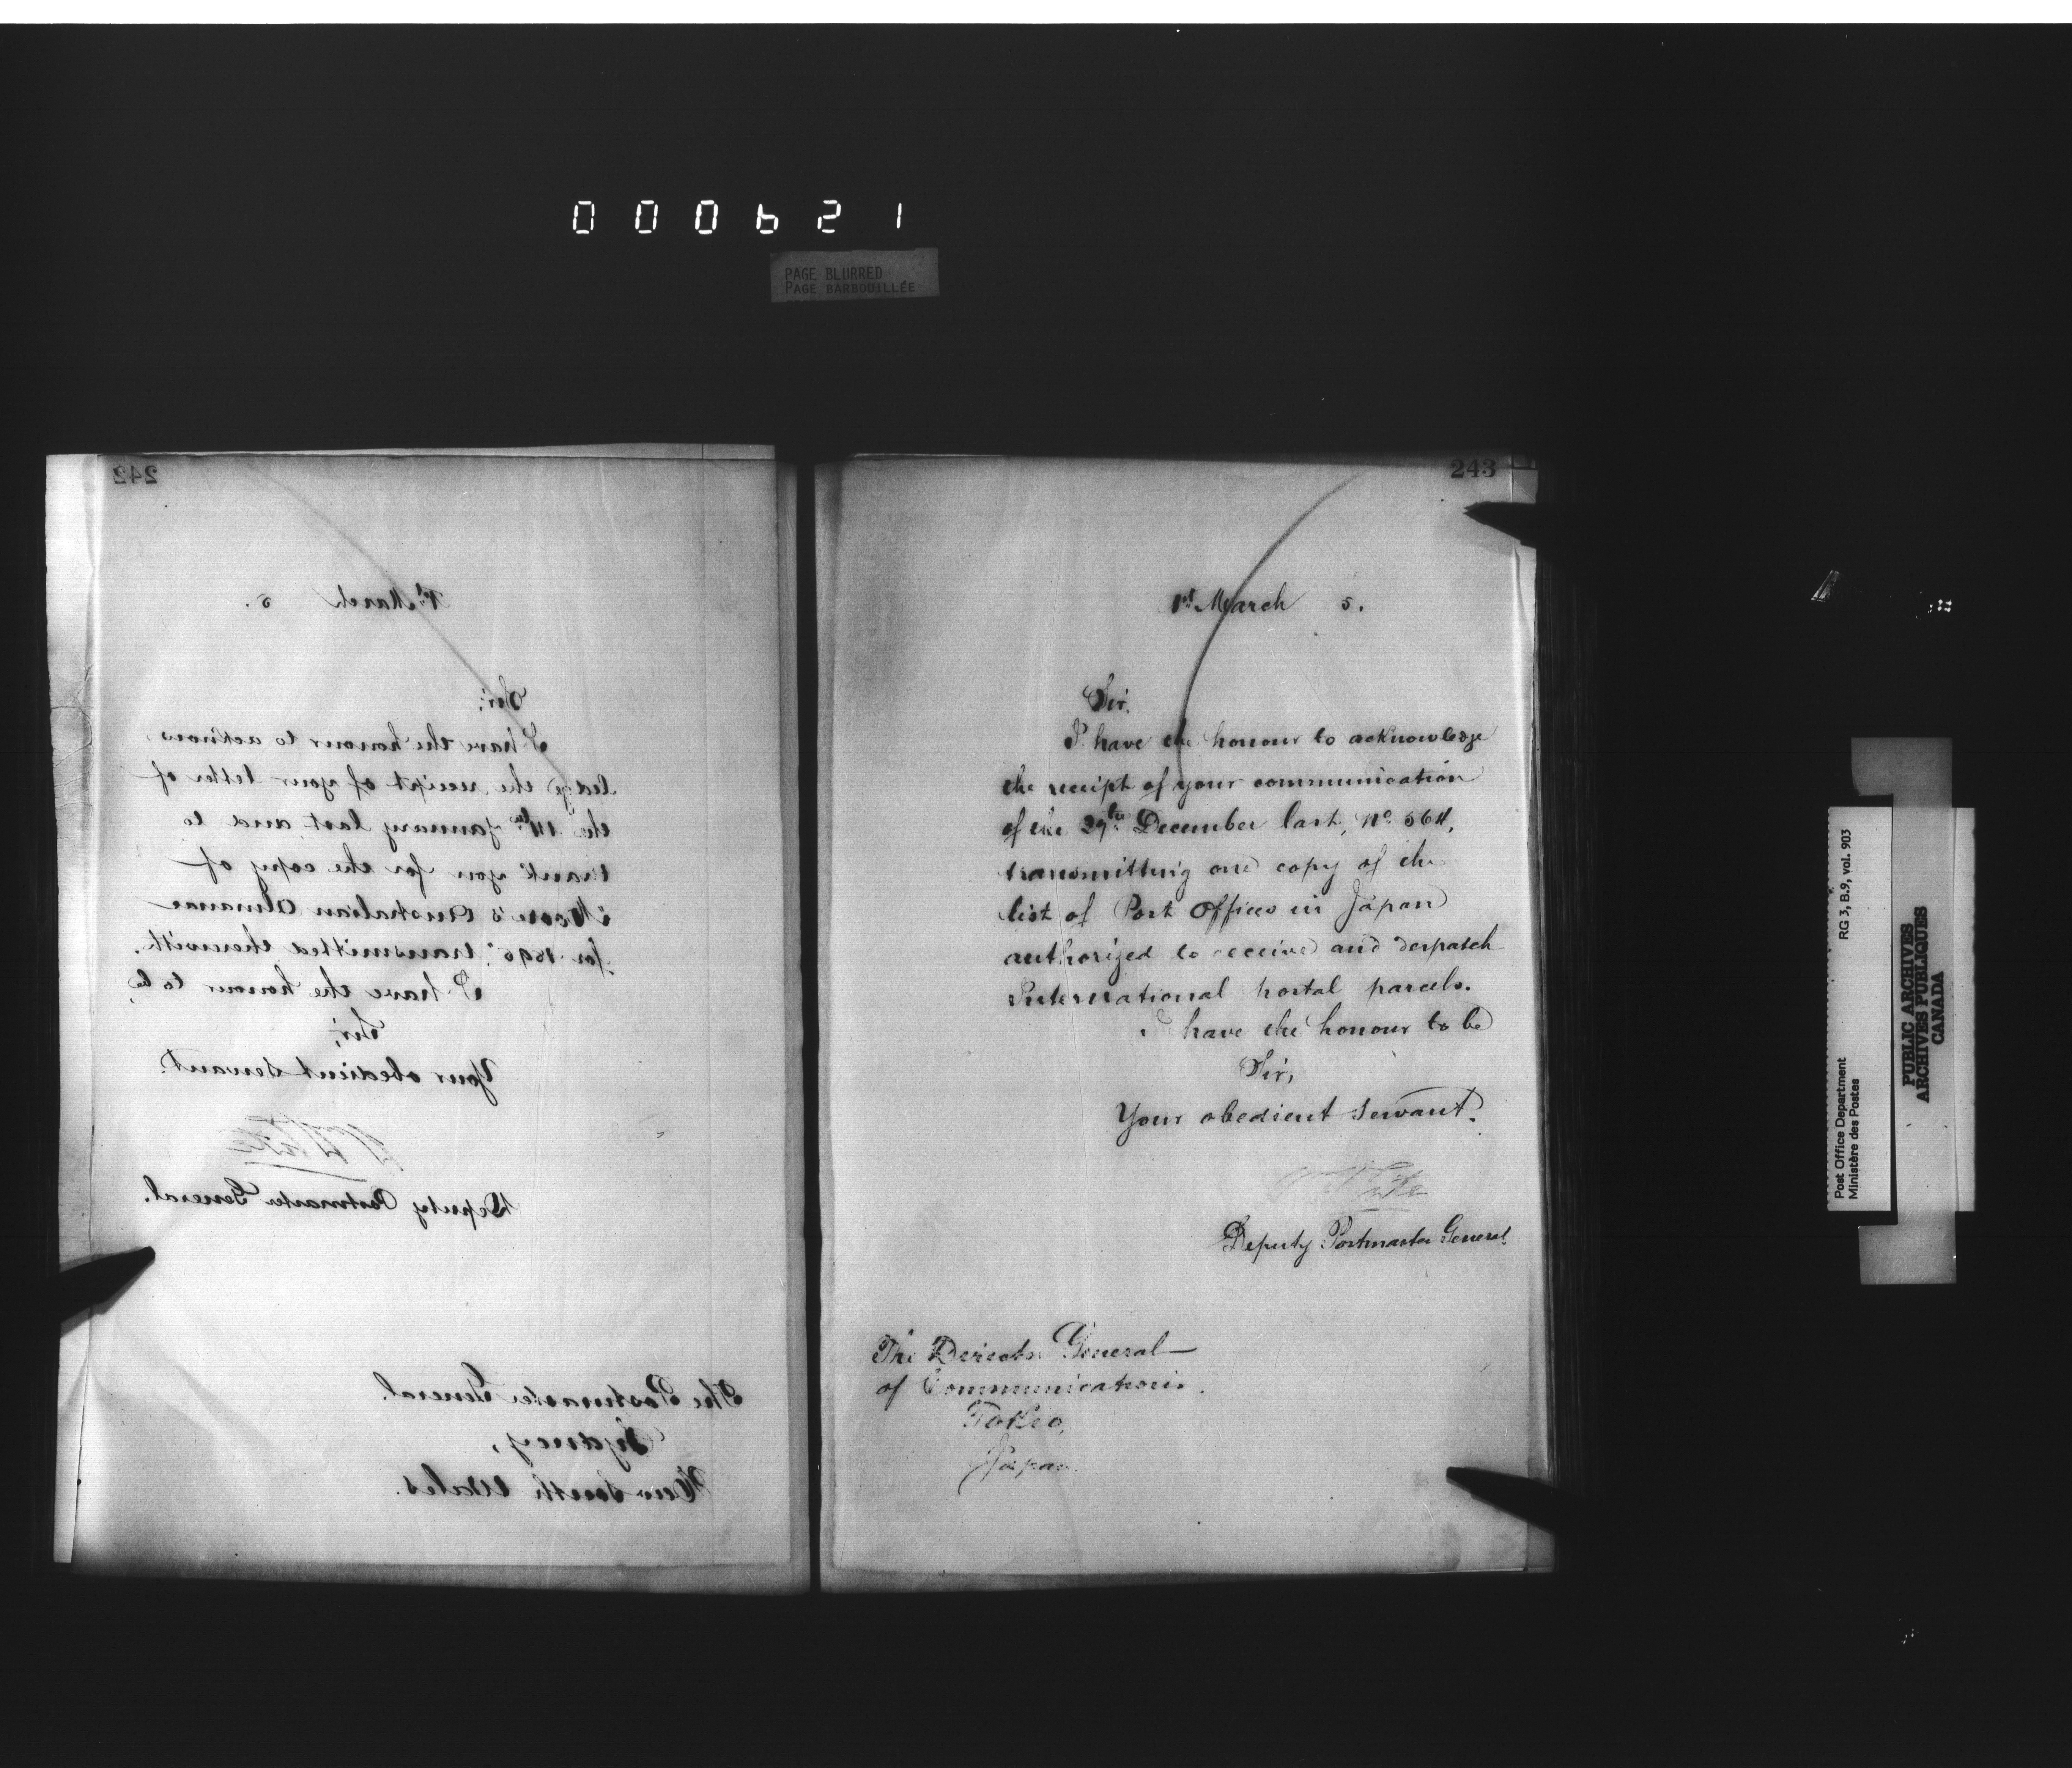 000621
PAGE BLURRED
PAGE BARBOUILLÉE
242
1st March 5.
Sir;
I have the honour to acknow
ledge the receipt of your letter of
the 14th January last and to
thank you for the copy of
Moore's Australian Almanac
for 1895, transmitted therewith.
I have the honour to be,
Sir,
Your obedient servant.
Deputy Postmaster General.
The Postmaster General.
Sydney,
New South Wales.
243
1st March 5.
Sir.
I have the honour to acknowledge
the receipt of your communication
of the December last, No. 564,
transmitting one copy of the
list of Post Offices in Japan
authorized to receive and despatch
International postal parcels.
I have the honour to be
Sir,
Your obedient servant.
Deputy Postmaster General
The Director General
of Communications.
Tokeo,
Japan.
Post Office Department
Ministère des Postes
RG 3, B.9, vol. 903
PUBLIC ARCHIVES
ARCHIVES PUBLIQUES
CANADA